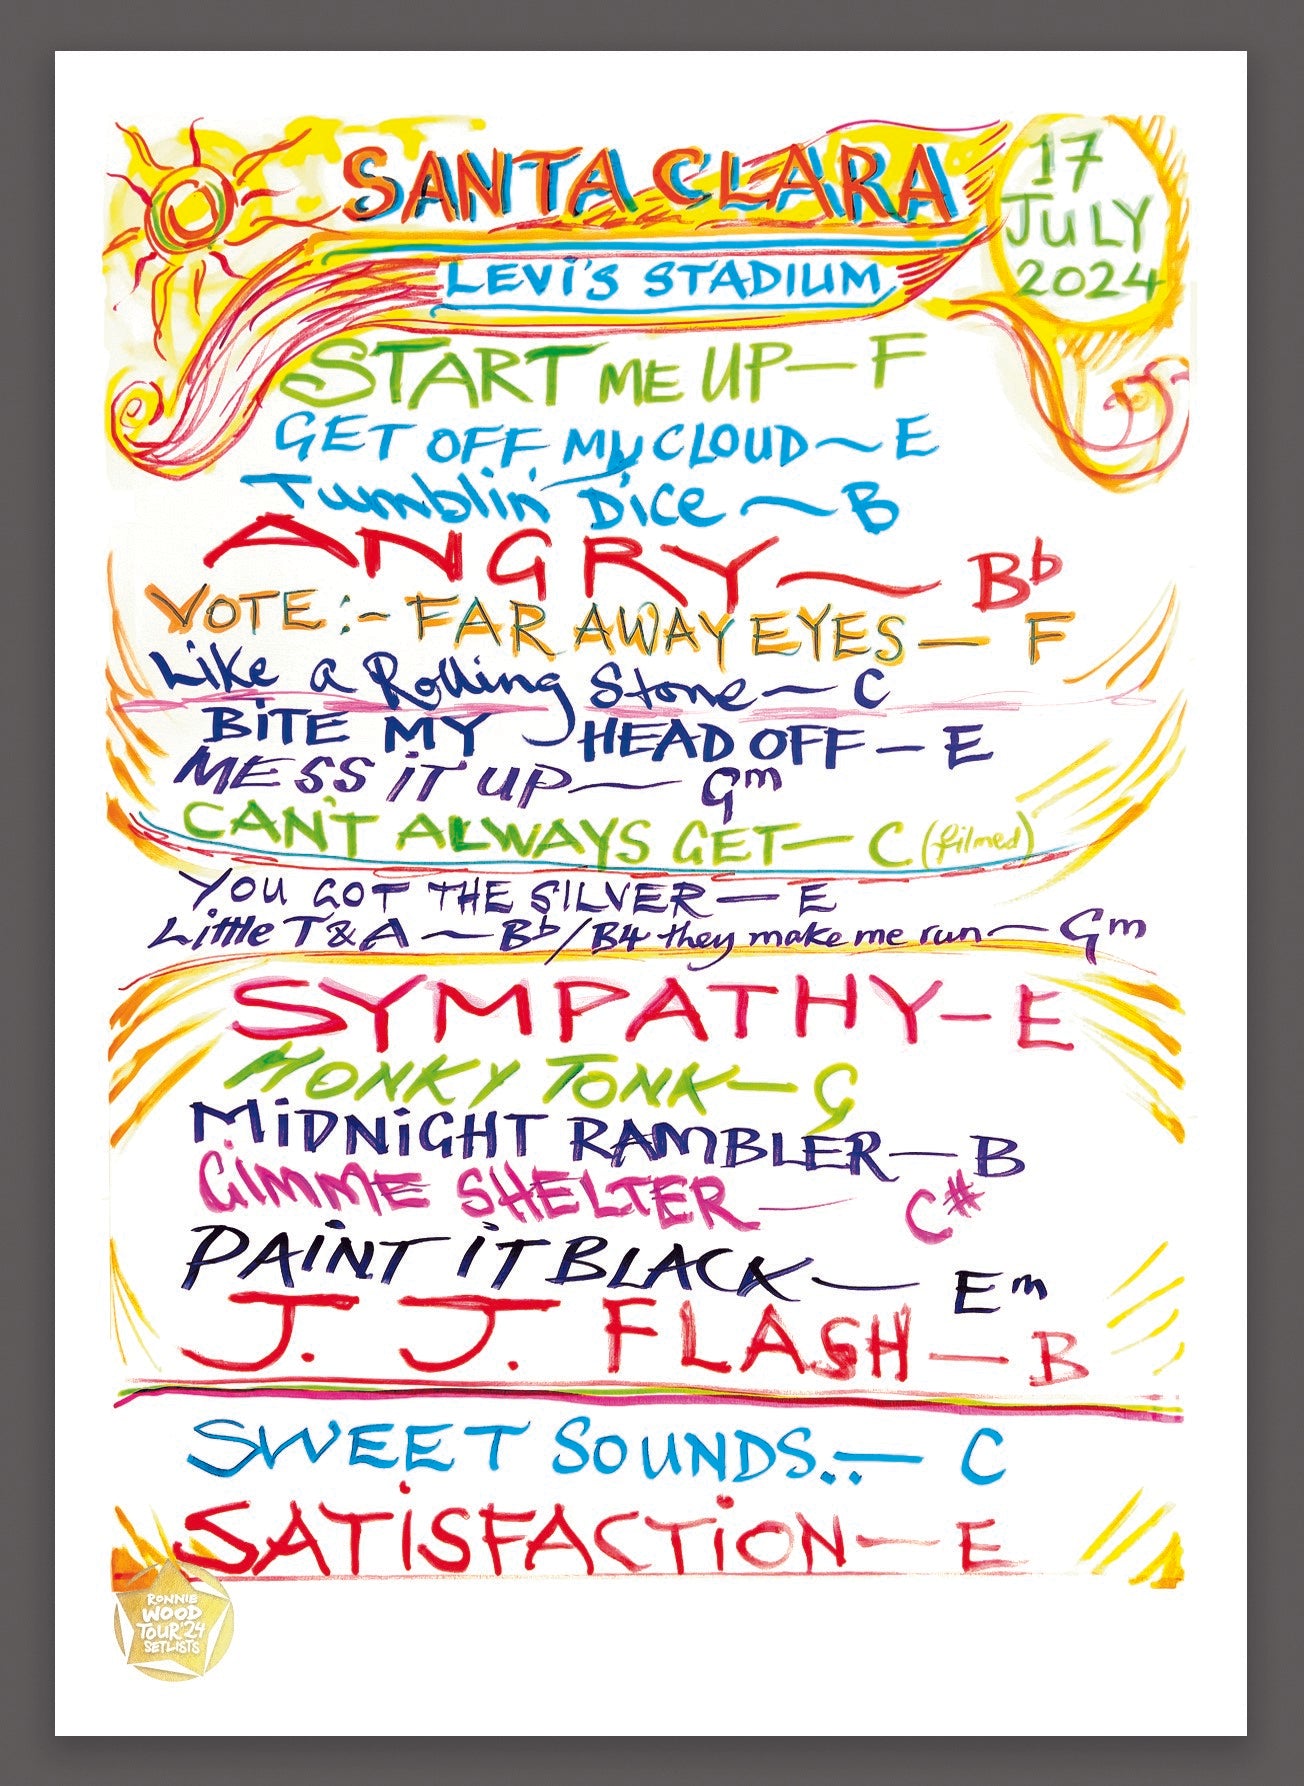 SANTA CLARA
17
JULY
2024
LEVI'S STADIUM
START ME UP — F
GET OFF MY CLOUD ~ E
Tumblin' Dice ~ B
ANGRY ~ Bb
VOTE :- FAR AWAY EYES — F
Like a Rolling Stone ~ C
BITE MY HEAD OFF — E
MESS IT UP ~ Gm
CAN'T ALWAYS GET — C (filmed)
YOU GOT THE SILVER — E
Little T & A ~ Bb / B4 they make me run ~ Gm
SYMPATHY — E
HONKY TONK — G
MIDNIGHT RAMBLER — B
GIMME SHELTER — C#
PAINT IT BLACK — Em
J. J. FLASH — B
SWEET SOUNDS.. — C
SATISFACTION — E
RONNIE
WOOD
TOUR '24
SETLISTS